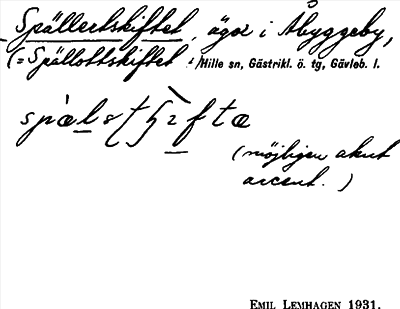 Spällertskiftet, ägor i Åbyggeby,
(= Spällottskiftet :) Hille sn, Gästrikl. ö. tg, Gävleb. l.
(möjligen akut
accent. )
EMIL LEMHAGEN 1931.